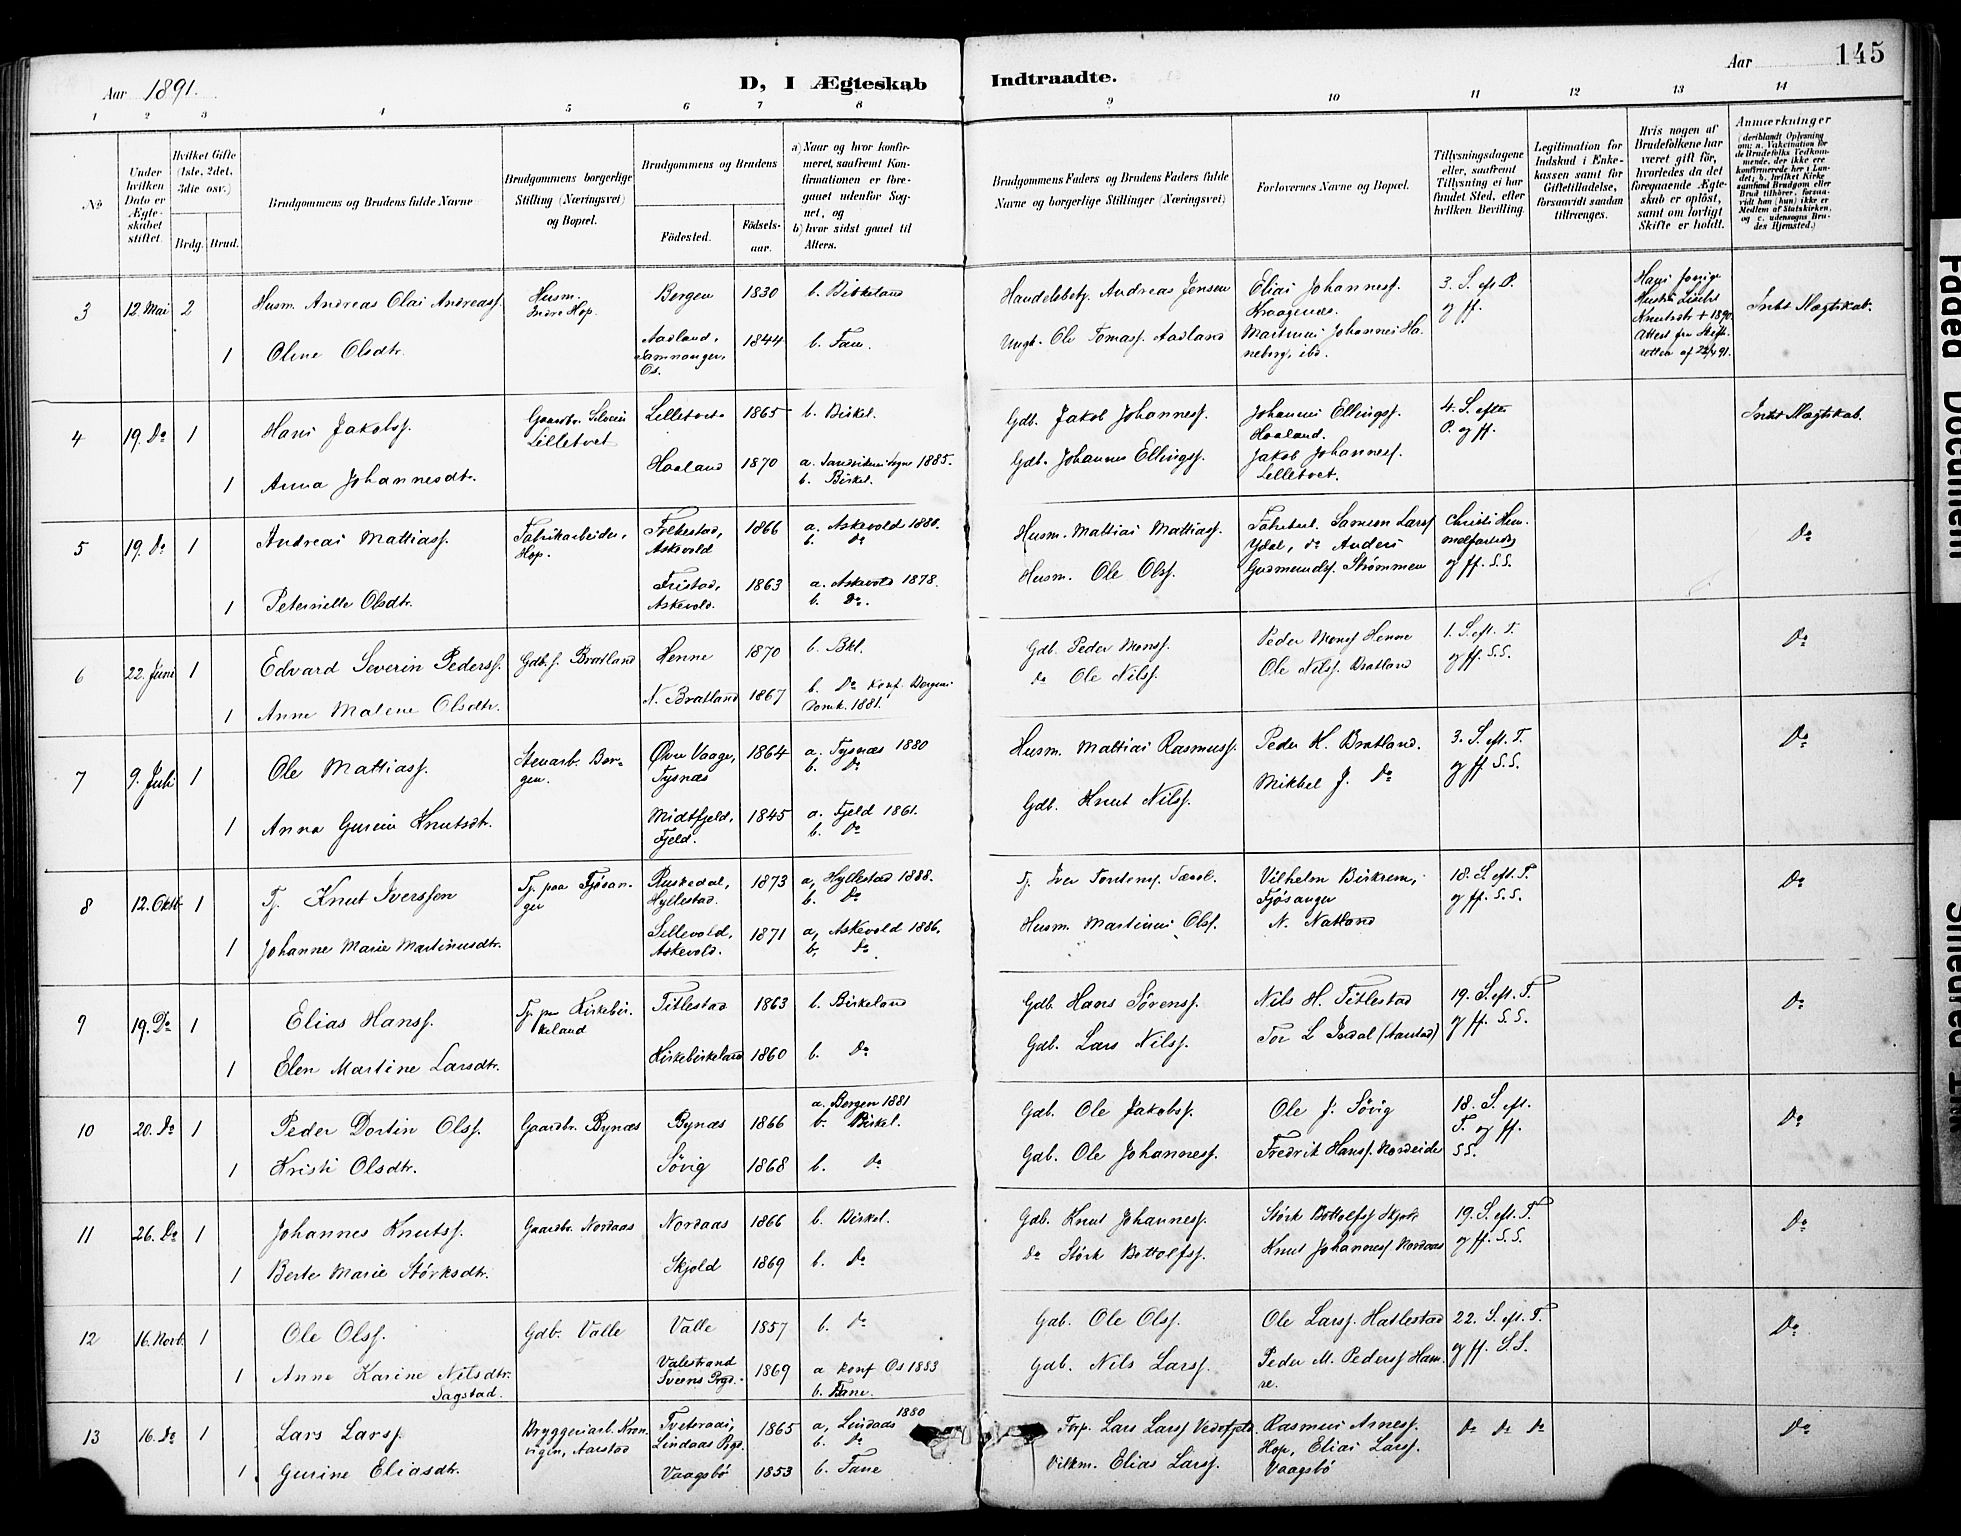 Aar 1891.
D, I Ægteskab Indtraadte.
Aar 145
1 2 3 4 5 6 7 8 9 10 11 12 13 14
No
Under hvilken Dato er Ægteskabet stiftet.
Hvilket Gifte (1ste, 2det, 3die osv.)
Brdg. Brud.
Brudgommens og Brudens fulde Navne
Brudgommens borgerlige Stilling (Næringsvei) og Bopæl.
Brudgommens og Brudens
Fødested. Fødselsaar.
a) Naar og hvor konfirmeret, saafremt Konfirmationen er foregaaet udenfor Sognet, og
b) hvor sidst gaaet til Alters.
Brudgommens Faders og Brudens Faders fulde Navne og borgerlige Stillinger (Næringsvei)
Forlovernes Navne og Bopæl.
Tillysningsdagene eller, saafremt Tillysning ei har fundet Sted, efter hvilken Bevilling.
Legitimation for Indskud i Enkekassen samt for Giftetilladelse, forsaavidt saadan tiltrænges.
Hvis nogen af Brudefolkene har været gift før, hvorledes da det foregaaende Ægteskab er opløst, samt om lovligt Skifte er holdt.
Anmærkninger (deriblandt Oplysning om: a. Vakcination for de Brudefolks Vedkommende, der ikke ere konfirmerede her i Landet, b. hvilket Kirkesamfund Brudgom eller Brud tilhører, forsaavidt han (hun) ikke er Medlem af Statskirken, og c. udensogns Brudes Hjemsted.)
3 12 Mai 2 Husm. Andreas Olai Andreass. Husm. Indre Hop. Bergen 1830 b. Birkeland Handelsbetj. Andreas Jensen Elias Johanness. Kraagenæs. 3. S. eft P. og ff. Hans forrige Hustru Lisbet Knutsdtr + 1890. Attest fra Skifteretten af 22/4 91. Intet Slægtskab.
1 Oline Olsdtr. Aadland, Samnanger, Os. 1844 b. Fane. Ungk. Ole Tomass. Aadland Martinus Johannes Haneborg, ibd.
4 19. Do 1 Hans Jakobss. Gaardbr. Lilletvet Lilletvet 1865 b. Birkel. Gdb. Jakob Johanness. Johannes Ellingss. Haaland. 4. S. efter P. og ff. Intet Slægtskab.
1 Anna Johannesdtr. Haaland 1870 a. Sandvikens Sogn 1885. b. Birkel. Gdb. Johannes Ellingss. Jakob Johanness. Lilletvet.
5 19. Do 1 Andreas Mattiass. Fabrikarbeider, Hop. Folkestad, Askevold 1866 a. Askevold 1880. b. Do Husm. Mattias Mattiass. Fabrikarb. Samson Larss Ydal, do Anders Gudmunds. Strømmen Christi Himmelfartsdg og ff. S.S. Do
1 Peternille Olsdtr. Fristad, Askevold. 1863 a. Askevold 1878. b. Do. Husm. Ole Olss.
6 22. Juni 1 Edvard Severin Pederss. Gdb.s. Bratland Henne 1870 b. Bkl. Gdb. Peder Monss. Peder Monss Henne 1. S. eft. T. og ff. S.S. Do
1 Anne Malene Olsdtr. N. Bratland 1867 b. Do Konf. Bergens Domk. 1881. do Ole Nilss. Ole Nilss. Bratland
7 9. Juli 1 Ole Mattiass. Stenarb. Bergen. Øvre Vaage, Tysnæs 1864 a. Tysnæs 1880 b. Do Husm. Mattias Rasmuss. Peder K. Bratland. 3. S. eft. T. og ff S.S. Do
1 Anna Gurine Knutsdtr. Midtfjeld, Fjeld. 1845 a. Fjeld 1861. b. Do Gdb. Knut Nilss. Mikkel J. Do
8 12. Oktb 1 Tj. Knut Iverssøn Tj. paa Fjøsanger Ruskedal, Hyllestad. 1873 a, Hyllestad 1888. b. Do Tj. Iver Vilhelm Birkrem, Fjøsanger 18. S. eft. T. og ff. S.S. Do
1 Johanne Marie Martinusdtr. Lillevold, Askevold. 1871 a, Askevold 1886. b, do Husm. Martinus Olss. N. Natland
9 19. Do 1 Elias Hanss. Tj. paa Kirkebirkeland Titlestad 1863 b. Birkeland Gdb. Hans Sørenss. Nils H. Titlestad 19. S. eft. T. og ff. S.S. Do
1 Elen Martine Larsdtr. Kirkebirkeland 1860 b. Do Gdb. Lars Nilss. Tor L Isdal (Aarstad)
10 20. Do 1 Peder Dortin Olss. Gaardbr. Bynæs Bynæs 1866 a. Bergen 1881 b. Birkel. Gdb. Ole Jakobss. Ole J. Søvig 18. S. eft. T. og ff. S.S. Do
1 Kristi Olsdtr. Søvig 1868 b. Do Gdb. Ole Johanness. Fredrik Hanss. Nordeide
11 26. Do 1 Johannes Knutss. Gaardbr. Nordaas Nordaas 1866 b. Birkel. Gdb. Knut Johanness. Størk Bottolfss Skjold 19. S. eft. T. og ff. S.S. Do
1 Berte Marie Størksdtr. Skjold 1869 b. Do do Størk Bottolfss. Knut Johanness Nordaas
12 16. Novb. 1 Ole Olss. Gdb. Valle Valle 1857 b. do Gdb. Ole Olss. Ole Larss. Hatlestad 22. S. eft. T. og ff. S.S. Do
1 Anne Karine Nilsdtr. Sagstad. Valestrand Sveens Prgd. 1869 a Konf Os 1883 b. Fane. Gdb. Nils Larss. Peder M. Pederss Hamre.
13 16. Do 1 Lars Larss. Bryggeriarb. Kronvigen, Aarstad Tveteraas, Lindaas Prgd. 1865 a, Lindaas 1880 b. Do Forp. Lars Larss Vedefjeld Rasmus Arness. Hop, Elias Larss. Vaagsbø Do Do Do Do
1 Gurine Eliasdtr. Vaagsbø 1853 b. Fane Vilkm. Elias Larss.
Faded Document
Smeared Ink